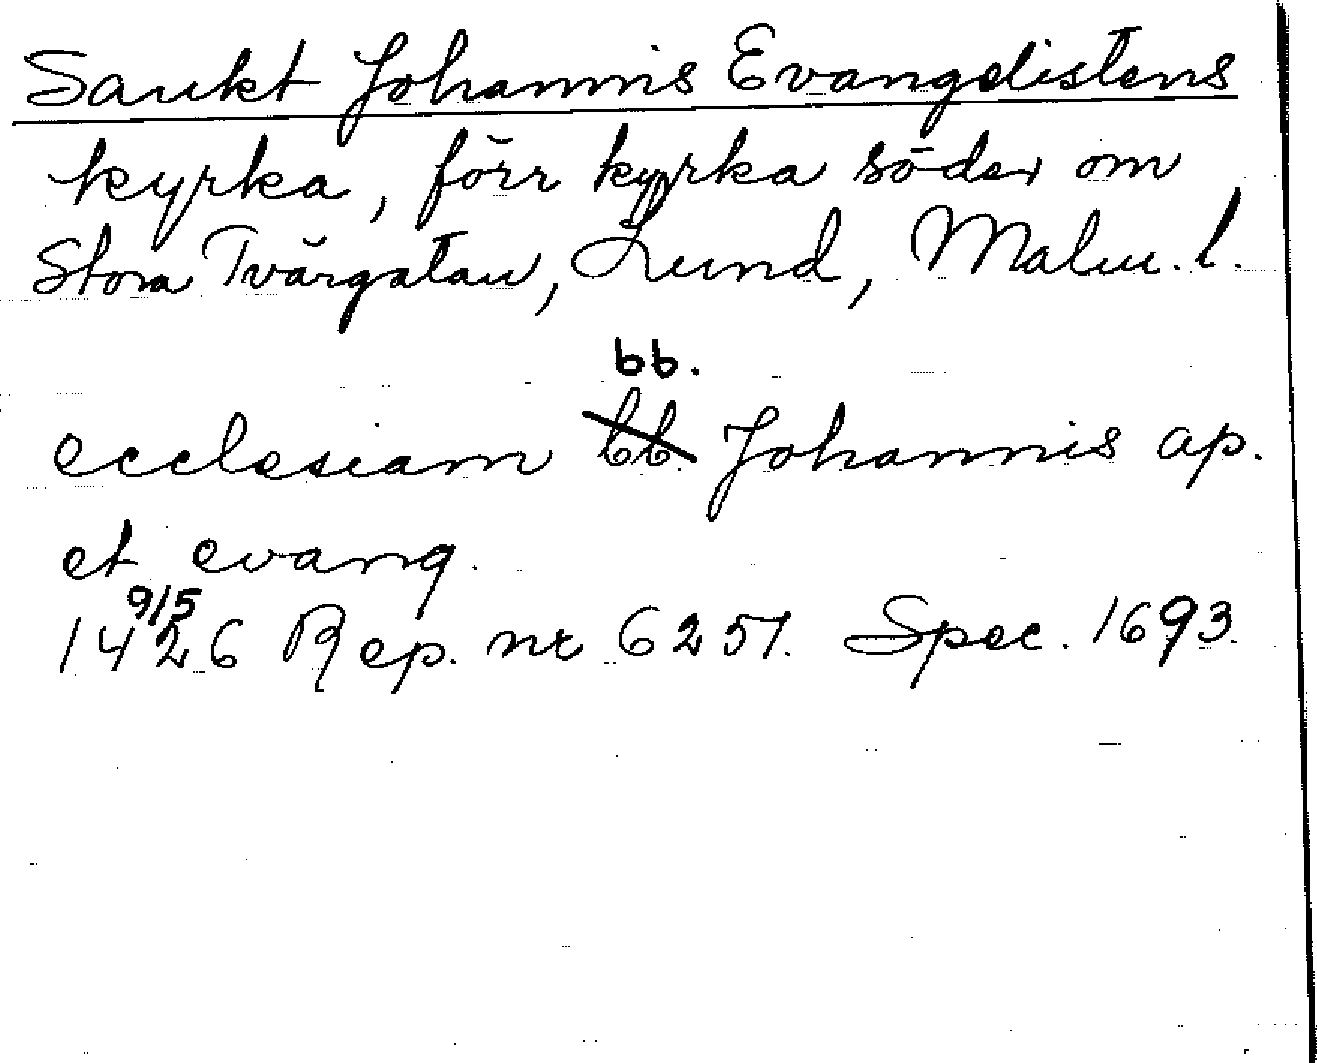 Sankt Johannis Evangelistens
kyrka, förr kyrka söder om
Stora Tvärgatan, Lund, Malm. l.
bb.
ecclesiam bb. Johannis ap.
et evang.
9/5
1426 Rep. nr 6257. Spec. 1693.